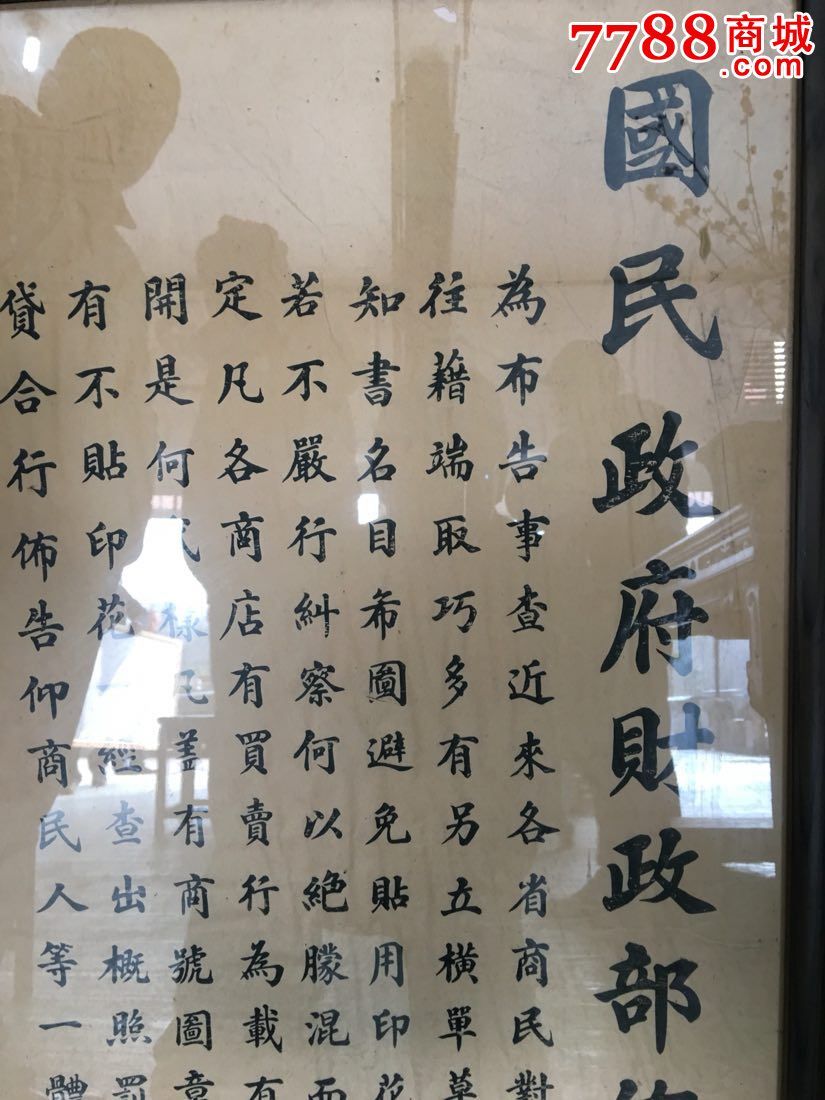 7788商城
.com
國民政府財政部
為布告事查近來各省商民對
往藉端取巧多有另立橫單草
知書名目希圖避免貼用印花
若不嚴行糾察何以絕朦混而
定凡各商店有買賣行為載有
開是何式樣凡蓋有商號圖章
有不貼印花一經查出概照罰
貸合行佈告仰商民人等一體